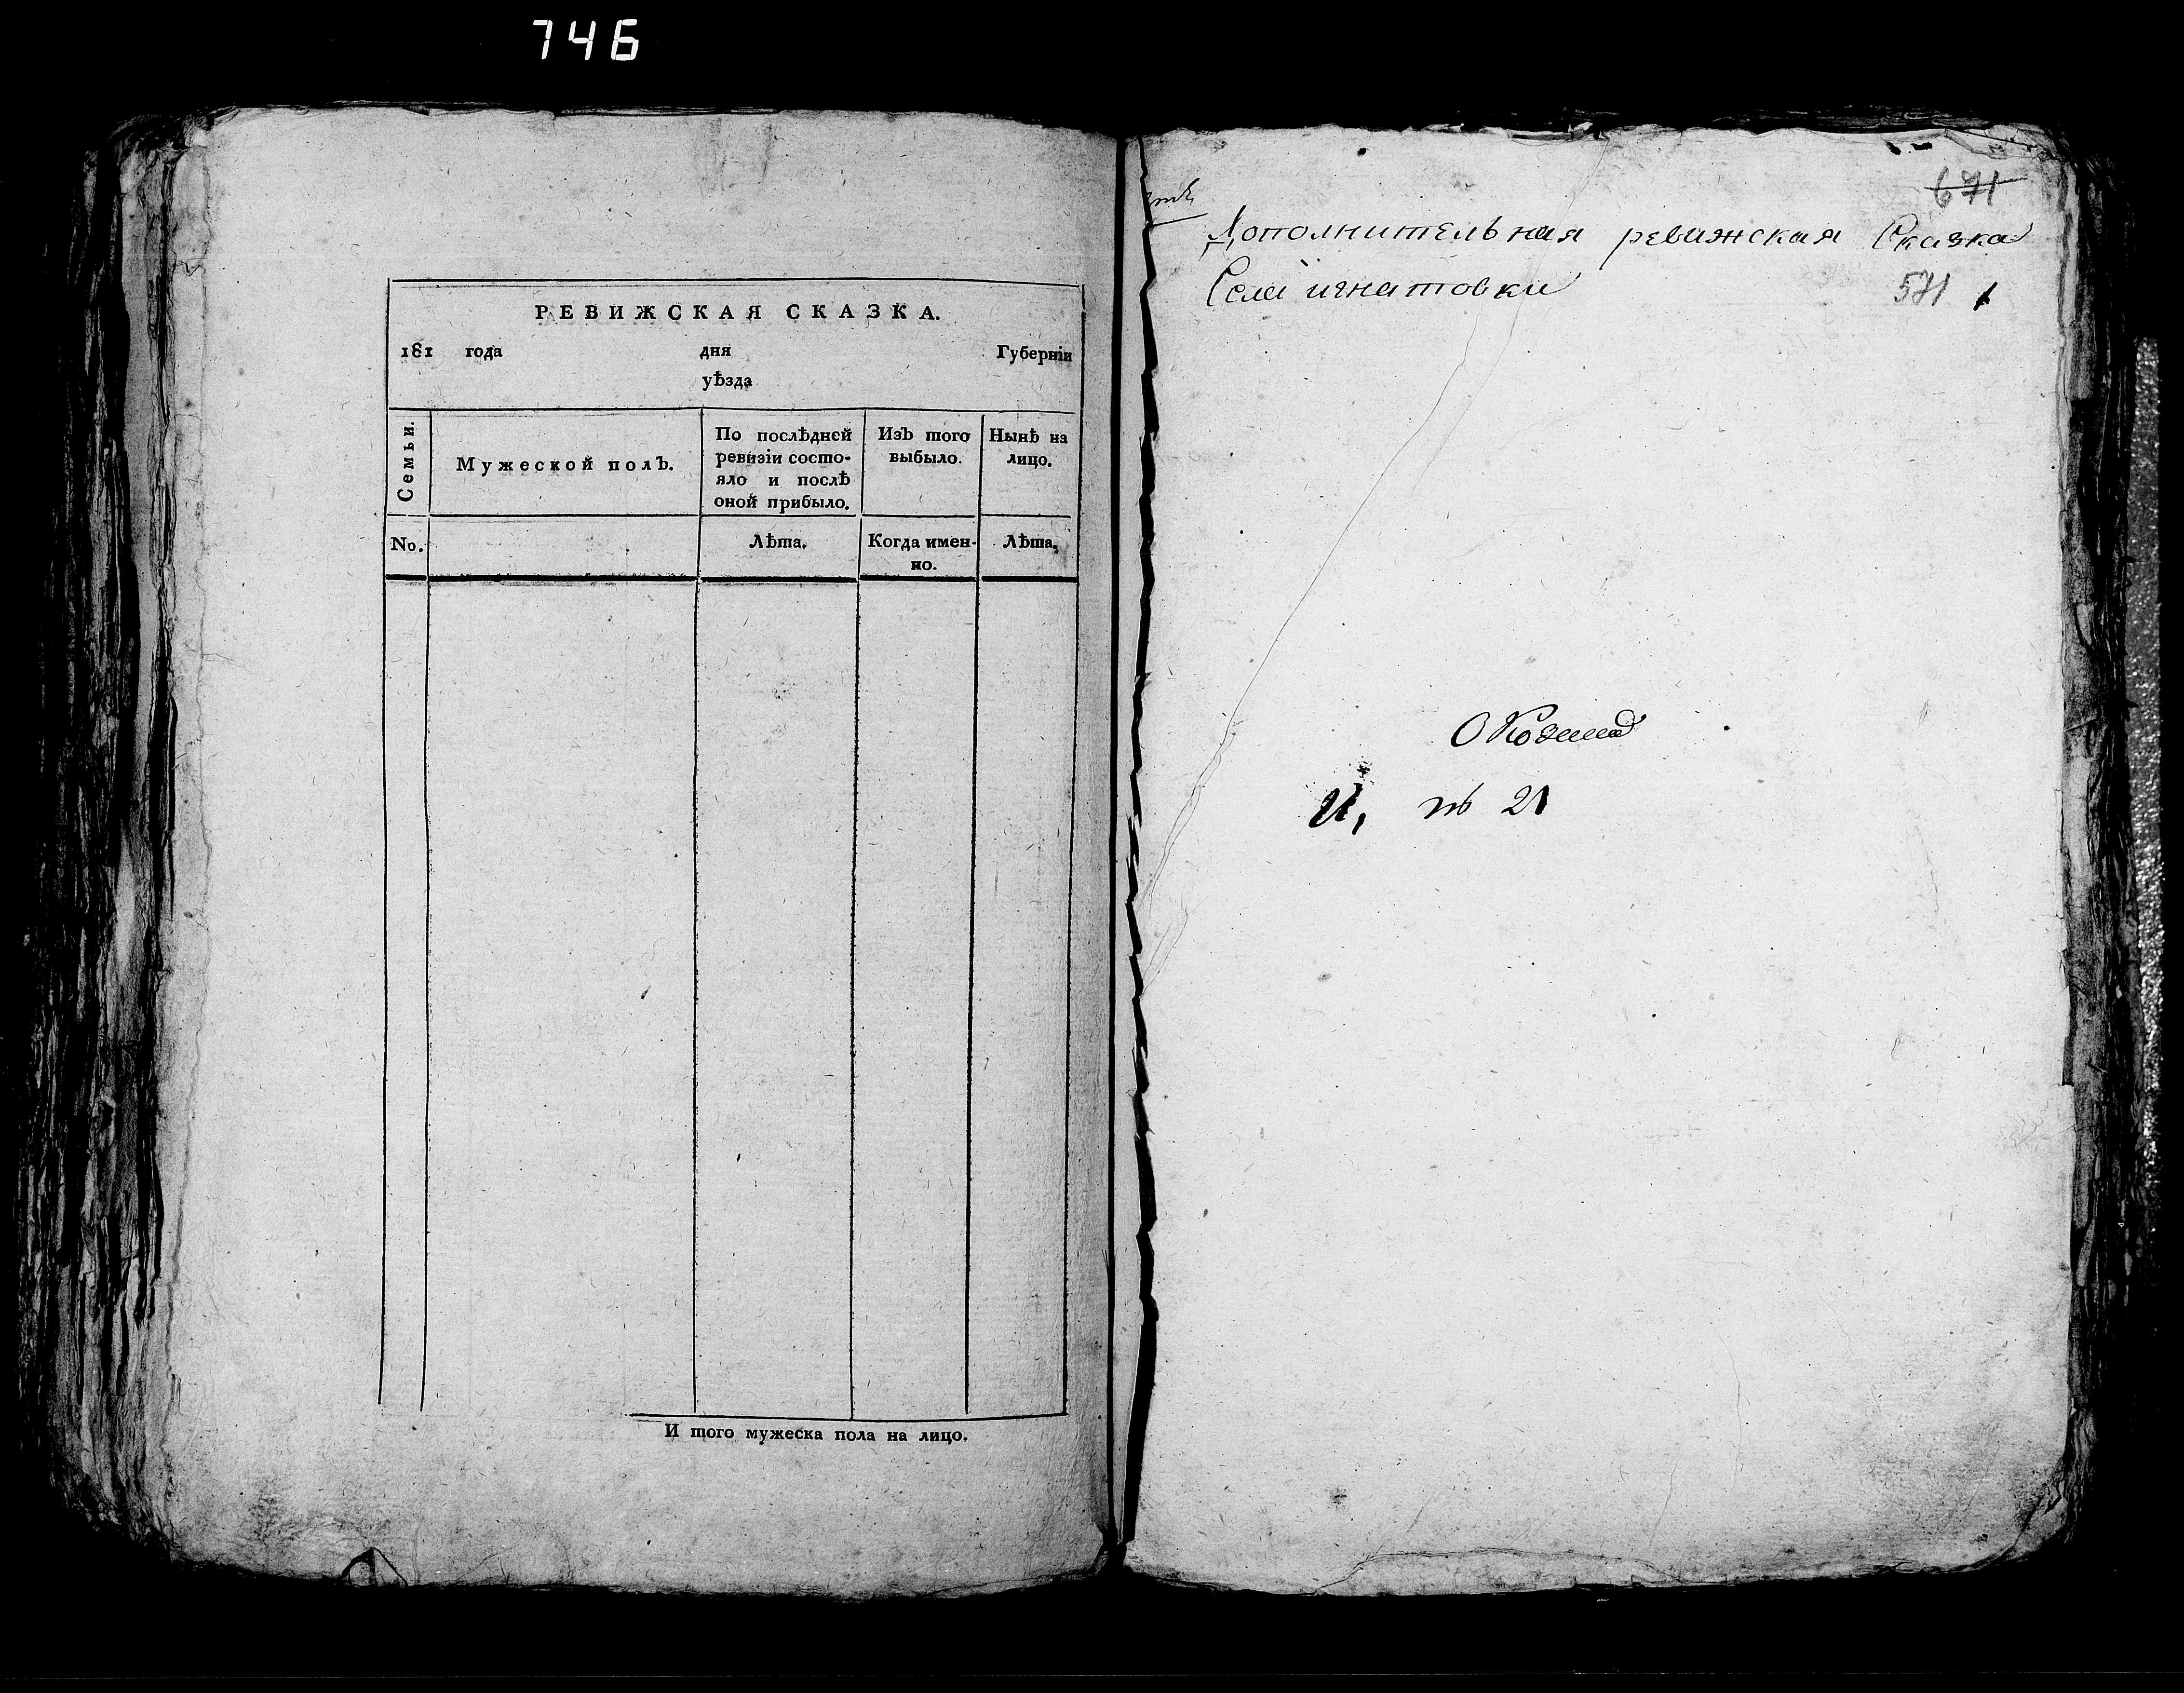 746
РЕВИЖСКАЯ СКАЗКА.
181 года дня Губерніи
уѣзда
Семьи.
Мужеской полъ.
По послѣдней
ревизіи состо-
яло и послѣ
оной прибыло.
Изъ того
выбыло.
Нынѣ на
лицо.
No.
Лѣта.
Когда имен-
но.
Лѣта.
И того мужеска пола на лицо.
671
Дополнительная ревижская Сказка
Села игнатовки
571
21